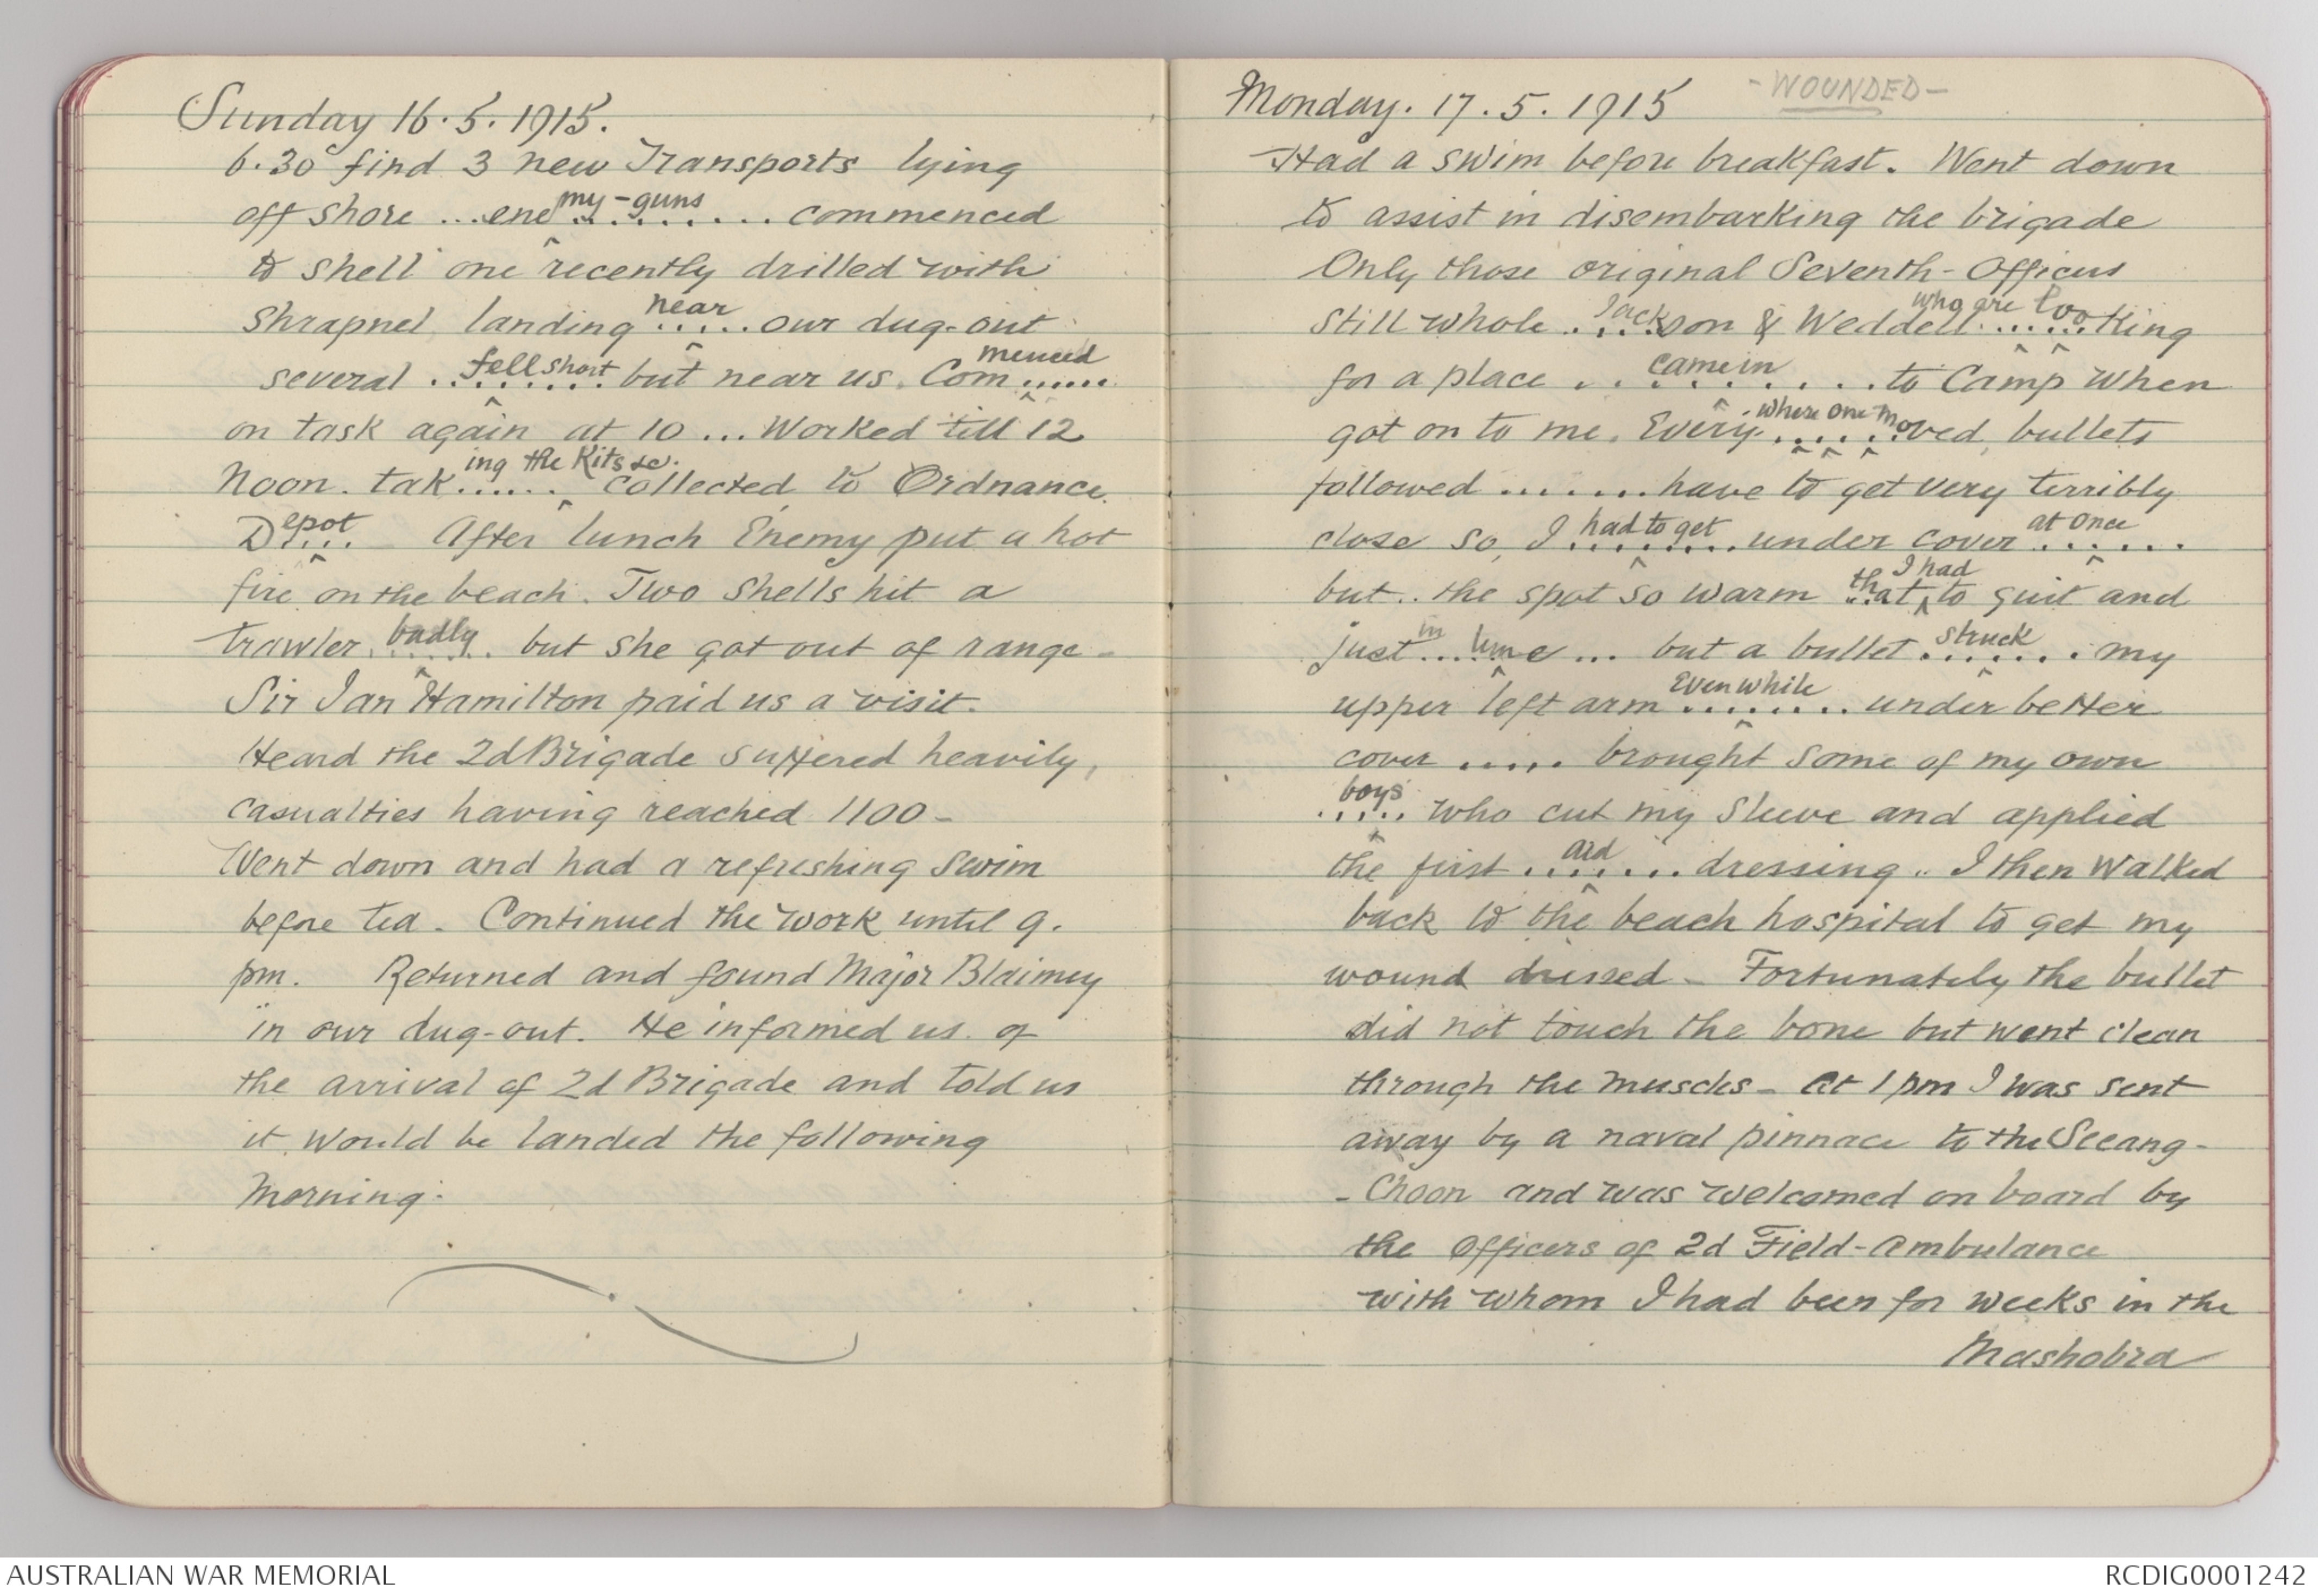 Sunday 16.5.1915.
6.30 find 3 new Transports lying
off shore ...enemy-guns....... commenced
to shell one recently drilled with
shrapnel landing near..... our dug-out
several ........ fell short but near us. Commenced......
on task again at 10 ... Worked till 12
Noon. taking the Kits &c...... collected to Ordnance
Depot.... After lunch Enemy put a hot
fire on the beach. Two Shells hit a
trawler badly...... but she got out of range -
Sir Ian Hamilton paid us a visit.
Heard the 2d Brigade suffered heavily,
casualties having reached 1100 -
Went down and had a refreshing swim
before tea. Continued the work until 9.
pm. Returned and found Major Blaimey
in our dug-out. He informed us of
the arrival of 2d Brigade and told us
it would be landed the following
Morning.
Monday. 17.5.1915 - WOUNDED -
Had a swim before breakfast. Went down
to assist in disembarking the brigade
Only those original Seventh - Officers
still whole ....Jackson & Weddell who are ......looking
for a place .......... came in to Camp when
got on to me. Every where one moved, bullets
followed ....... have to get very terribly
close so, I had to get ........ under cover at once......
but.. the spot so warm that I had to quit and
just in.... time ... but a bullet struck ....... my
upper left arm Even while ........ under better
cover ..... brought some of my own
boys..... who cut my sleeve and applied
the first aid....... dressing .. I then walked
back to the beach hospital to get my
wound dressed - Fortunately the bullet
did not touch the bone but went clean
through the muscles - At 1 pm I was sent
away by a naval pinnace to the Seeang-
- Choon and was welcomed on board by
the Officers of 2d Field-Ambulance
with whom I had been for weeks in the
Mashobra
AUSTRALIAN WAR MEMORIAL
RCDIG0001242